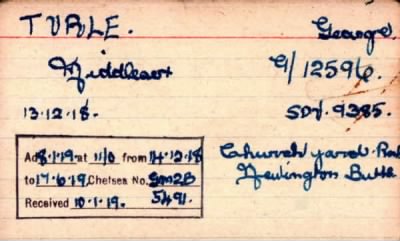 TURLE. George
Middlesex G/12596.
13.12.18. SDV. 9385.
Ad 8.1.19. at 11/0 from 14.12.18
to 17.6.19. Chelsea No. 9M2B
Received 10.1.19. 5491.
Churchyard Row
Newington Butts